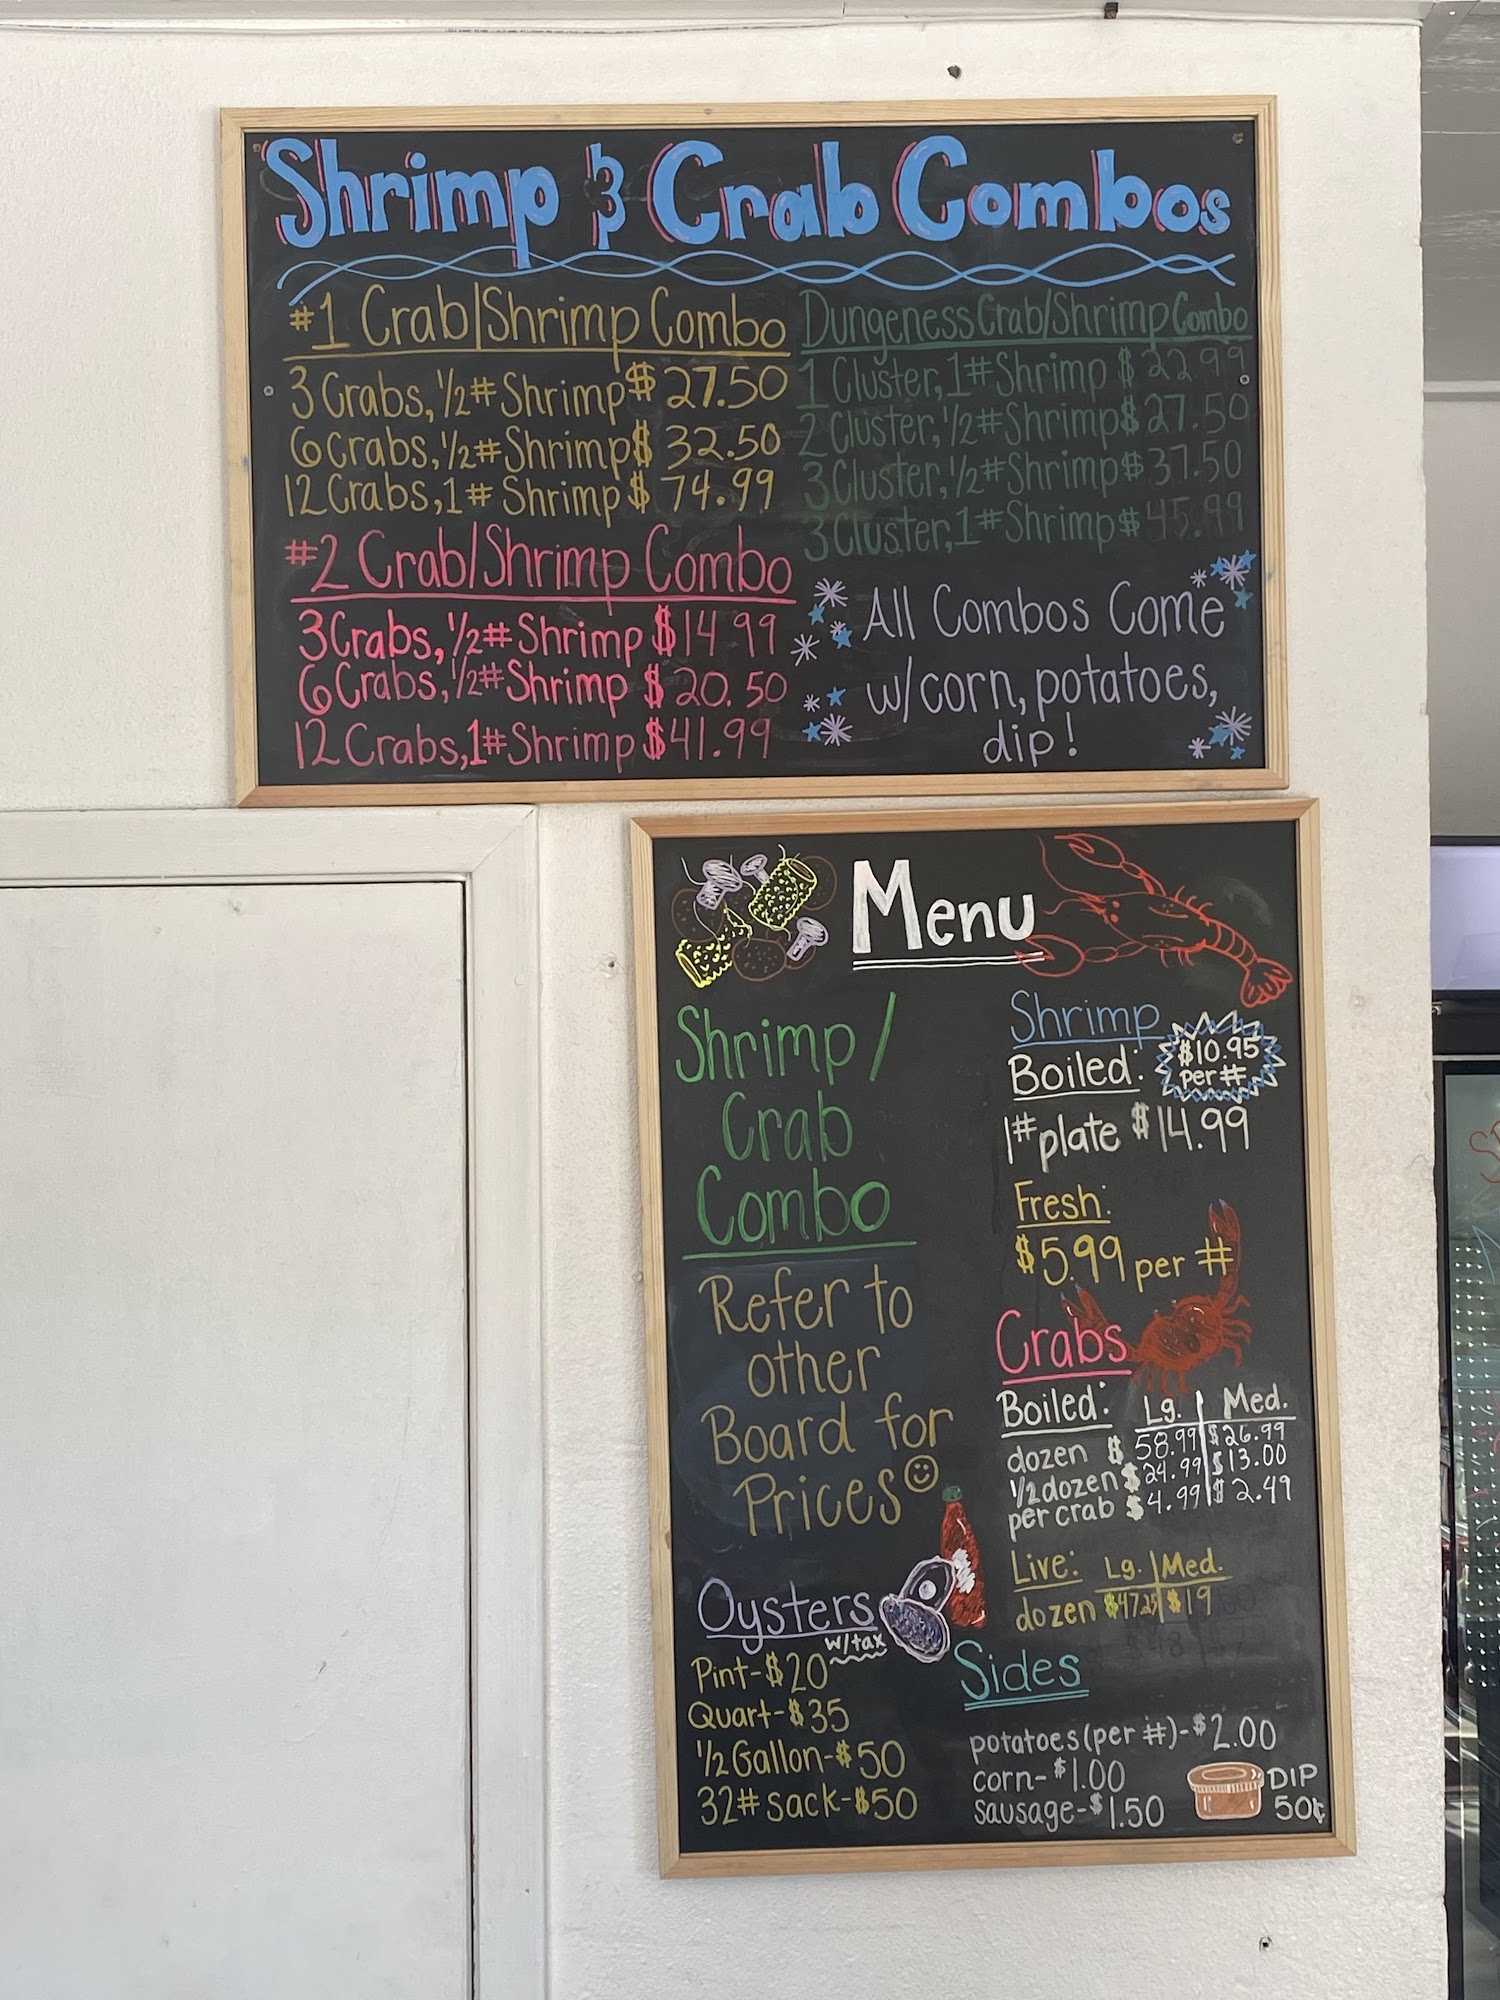 Shrimp & Crab Combos
#1 Crab/Shrimp Combo
3 Crabs, 1/2# Shrimp $27.50
6 Crabs, 1/2# Shrimp $32.50
12 Crabs, 1# Shrimp $74.99
#2 Crab/Shrimp Combo
3 Crabs, 1/2# Shrimp $14.99
6 Crabs, 1/2# Shrimp $20.50
12 Crabs, 1# Shrimp $41.99
Dungeness Crab/Shrimp Combo
1 Cluster, 1# Shrimp $22.99
2 Cluster, 1/2# Shrimp $27.50
3 Cluster, 1/2# Shrimp $37.50
3 Cluster, 1# Shrimp $45.99
All Combos Come
w/corn, potatoes,
dip!
Menu
Shrimp/
Crab
Combo
Refer to
other
Board for
Prices
Oysters
w/tax
Pint-$20
Quart-$35
1/2 Gallon-$50
32# sack-$50
Shrimp
Boiled: $10.95
per #
1# plate $14.99
Fresh:
$5.99 per #
Crabs
Boiled: Lg. Med.
dozen $58.99 $26.99
1/2 dozen $24.99 $13.00
per crab $4.99 $2.49
Live: Lg. Med.
dozen $47.25 $19
Sides
potatoes (per #)-$2.00
corn-$1.00
sausage-$1.50
DIP
50¢